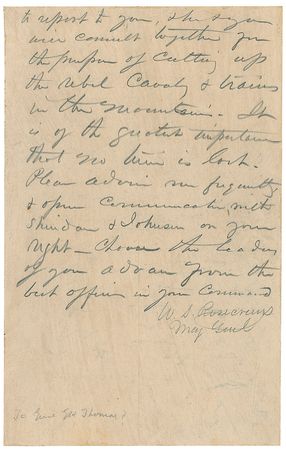 to report to you, & you
will consult together for
the purpose of cutting up
the rebel Cavalry & trains
in the mountains. It
is of the greatest importance
that no time is lost.
Please advise me frequently
& open communication with
Sheridan & Johnson on your
right — Choose the leaders
of your advance from the
best officers in your command
W. S. Rosecrans
Maj Genl
To Genl Geo Thomas